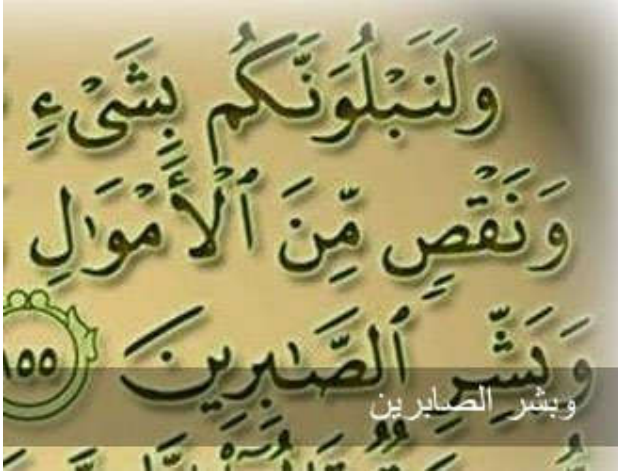 وَلَنَبۡلُوَنَّكُم بِشَىۡءٍ
وَنَقۡصٍ مِّنَ ٱلۡأَمۡوَٰلِ
وَبَشِّرِ ٱلصَّـٰبِرِينَ ١٥٥
وبشر الصابرين